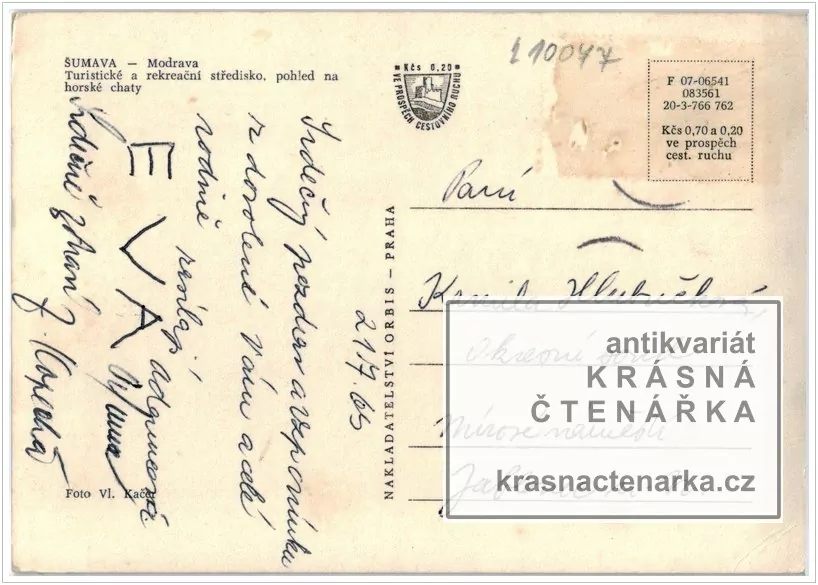 ŠUMAVA — Modrava
Turistické a rekreační středisko, pohled na
horské chaty
Kčs 0.20
VE PROSPĚCH CESTOVNÍHO RUCHU
F 07-06541
083561
20-3-766 762
Kčs 0,70 a 0,20
ve prospěch
cest. ruchu
Srdečný pozdrav a vzpomínku
z dovolené Vám a celé
rodině posílají
EVA
Srdečně zdraví
21/7.65
NAKLADATELSTVÍ ORBIS — PRAHA
Paní
Kamila
Mírové náměstí
antikvariát
KRÁSNÁ
ČTENÁŘKA
krasnactenarka.cz
Foto Vl. Kačer